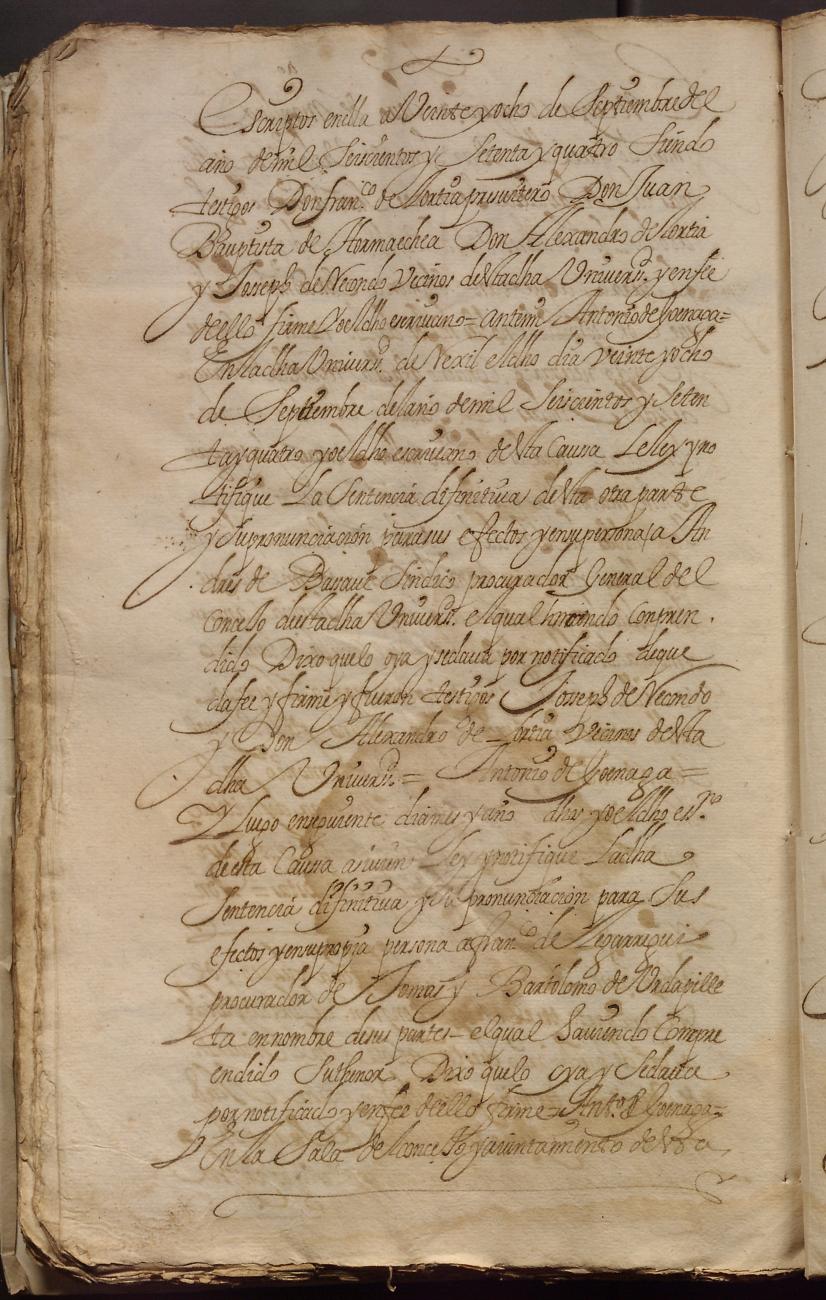 Escriptos en ella a Veinte y ocho de Septiembre del
año de mil Seiscientos y Setenta y quatro Siendo
testigos Don fran.co de Lortia presuitero Don Juan
Bauptista de Hormaechea Don Alexandro de Lortia
y Joseph de Necondo Vecinos desta dha Univers.d y en fee
de ello firme Yo el dho escriuano = antemi Antonio de Goenaga =
En la dha Univers.d de Vexil el dho dia Veinte y ocho
de Septiembre del año de mil Seiscientos y Seten
ta y quatro yo el dho escriuano desta Causa Ley y no
tifique La Sentencia difinitiua desta otra parte
y Su pronunciaçion para sus efectos y en su persona a An
dres de Sindico procurador General del
Concejo desta dha Univers.d el qual hauiendo Conpren
dido Dixo que lo oya y se daua por notificado de que
da fee y firme y fueron testigos Joseph de Necondo
y Don Alexandro de Lortia Vecinos desta
dha Univers.d = Antonio de Goenaga =
Y Luego en siguiente dia mes y año dhos yo el dho es.no
de esta Causa asiuien Ley y notifique La dha
Sentencia difinitiua y Su pronunciaçion para Sus
efectos y en su propia persona a fran.co de Legarregui
procurador de Tomas y Bartolome de Vrdapille
ta en nombre de sus partes = el qual hauiendo Compre
endido Su thenor Dixo que lo oya y Se daua
por notificado y en fee de ello firme = Ant.o de Goenaga =
En la Sala del Concejo y ayuntamiento desta